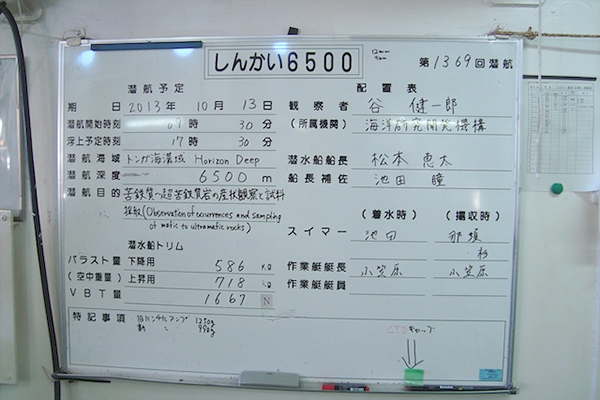 しんかい6500
第1369回潜航
潜航予定
配置表
期日 2013年 10月 13日
観察者 谷 健一郎
潜航開始時刻 07時 30分
(所属機関) 海洋研究開発機構
浮上予定時刻 17時 30分
潜航海域 トンガ海溝域 Horizon Deep
潜水船船長 松本 恵太
潜航深度 6500 m
船長補佐 池田 瞳
潜航目的 苦鉄質〜超苦鉄質岩の産状観察と試料
採取(Observation of occurrences and sampling
of mafic to ultramafic rocks)
(着水時) (揚収時)
スイマー 池田 那須
杉
潜水船トリム
バラスト量 下降用 586 kg
(空中重量) 上昇用 718 kg
VBT量 1667 N
作業艇艇長 小笠原 小笠原
作業艇艇員
特記事項
1250g
990g
CTDキャップ